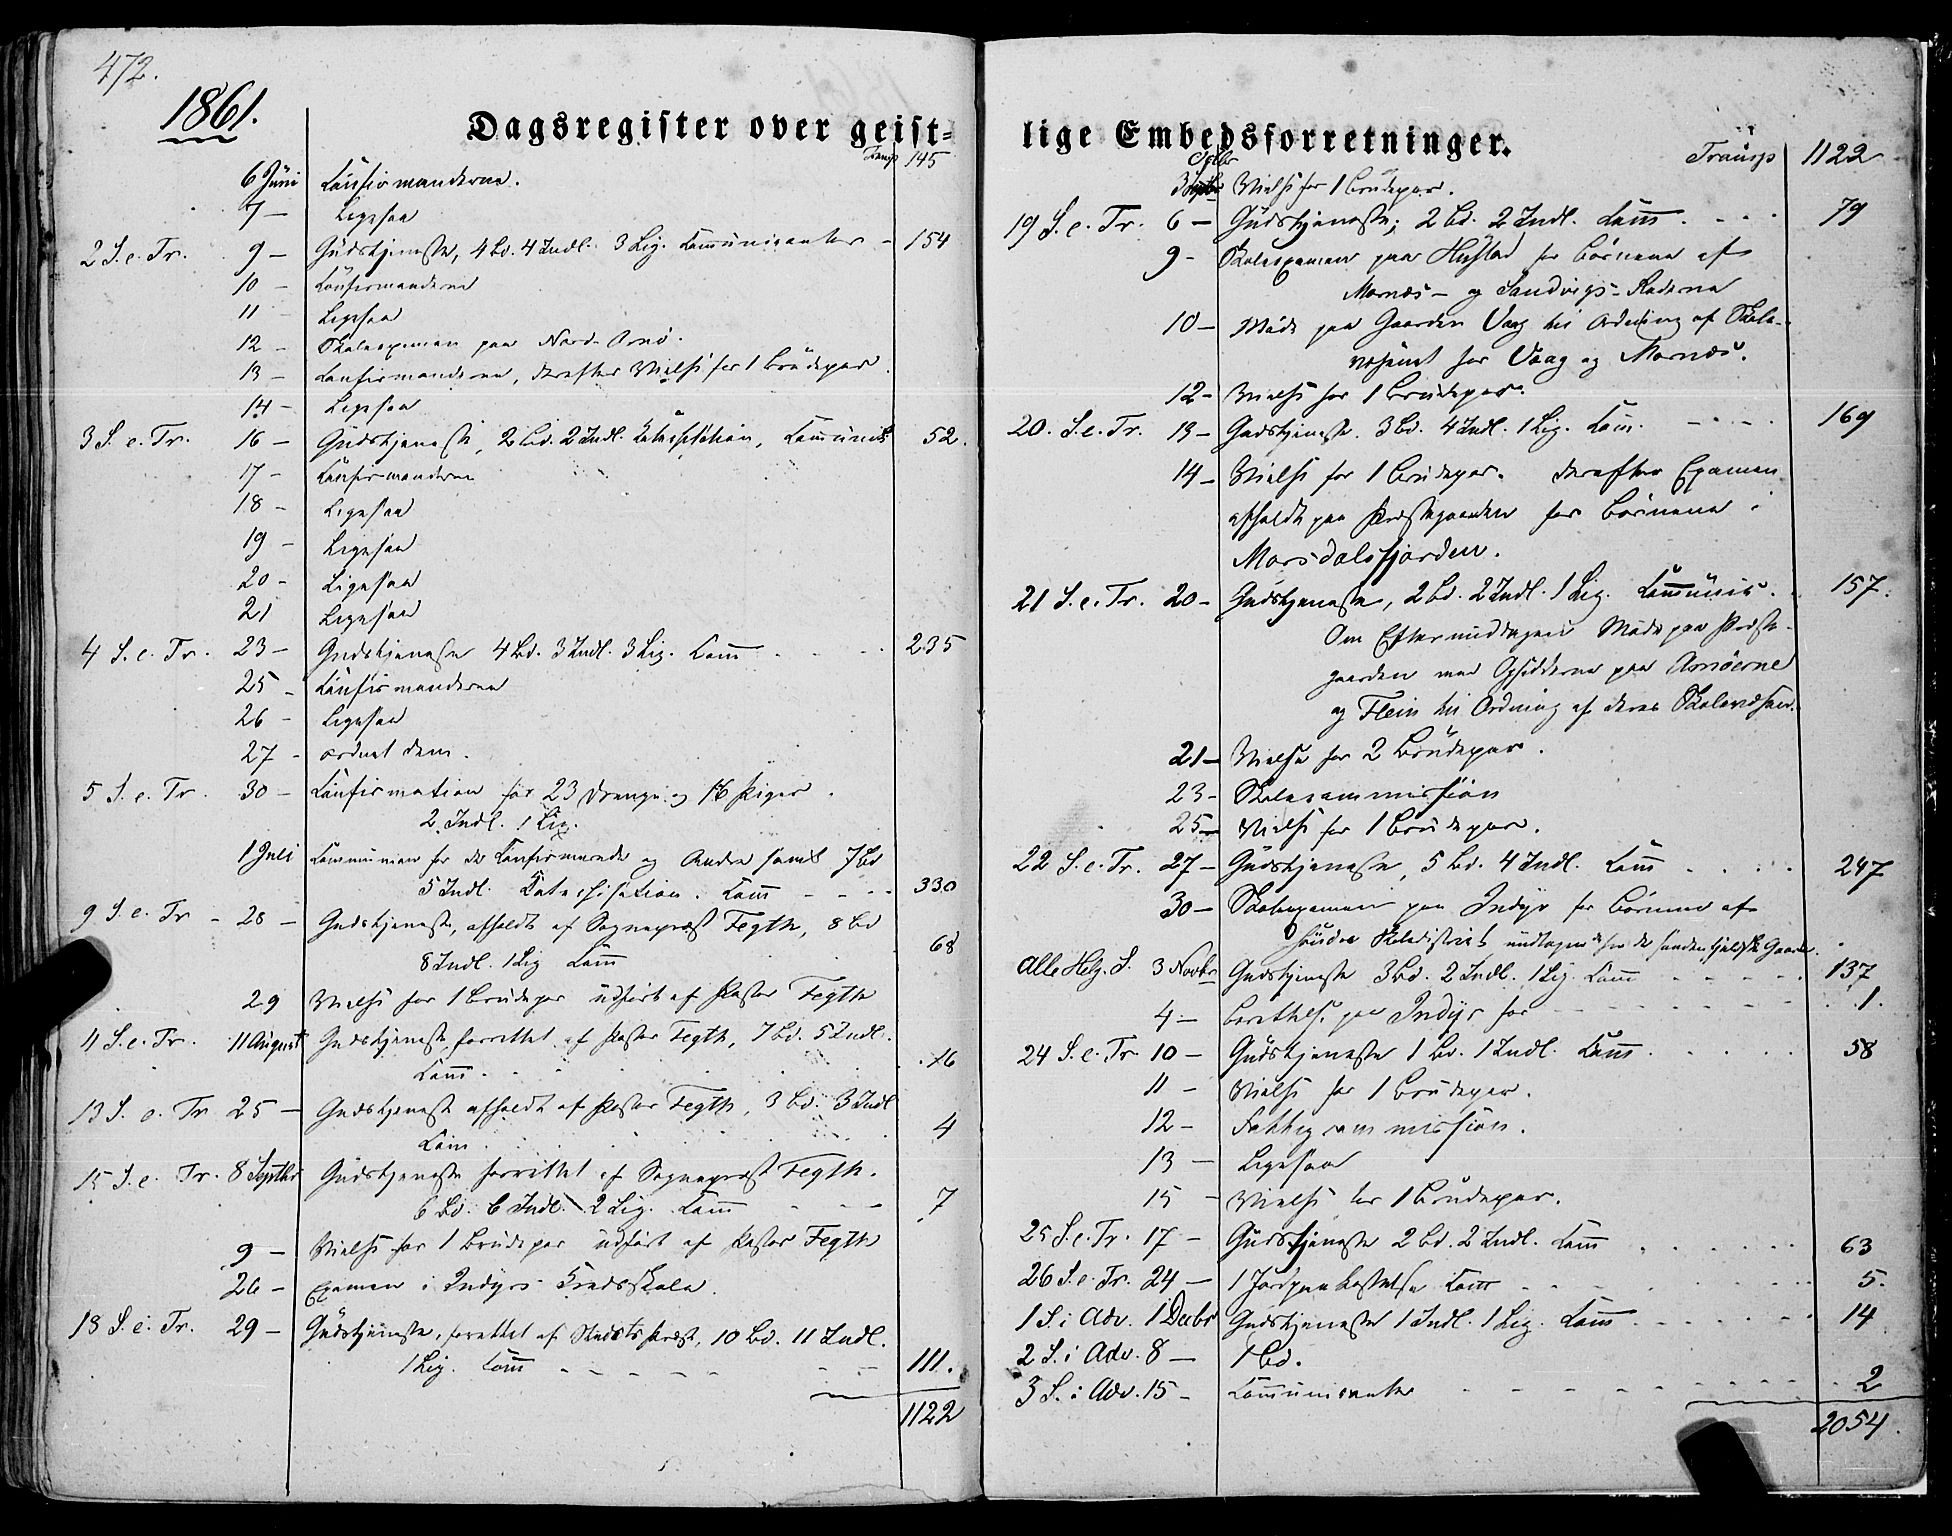 472.
1861.
Dagsregister over geist=
Transp 145
6 Juni Confirmanderne.
7 — Ligesaa
2 S. e. Tr. 9 — Gudstjeneste, 4 Bd. 4 Indl. 3 Lig. Communicanter - 154
10 — Confirmanderne
11 Ligesaa
12 — Skoleexamen paa Nord-Arnø.
13 — Confirmanderne, derefter Vielse for 1 Brudepar.
14 — Ligesaa
3 S. e. Tr. 16 — Gudstjeneste, 2 Bd. 2 Indl. Katechisation, Communik 52.
17 — Confirmanderne
18 — Ligesaa
19 — Ligesaa
20 - Ligesaa
21 Ligesaa
4 S. e. Tr. 23 — Gudstjeneste 4 Bd. 3 Indl. 3 Lig. Comm - - - 235
25 - Confirmanderne
26 - Ligesaa
27 - ordnet dem.
5 S. e. Tr. 30 — Confirmation for 23 Drenge og 16 Piger.
2 Indl. 1 Lig.
1 Juli Communion for de Confirmerede og Andre samt 7 Bd
5 Indl. Katechisation. Comm - - - - 330
9 S. e. Tr - 28 — Gudstjeneste, afholdt af Sognepræst Fegth, 8 Bd
8 Indl. 1 Lig Comm 68
29 Vielse for 1 Brudepar udført af Pastor Fegth
11 S. e. Tr. 11 August Gudstjeneste forrettet af Pastor Fegth, 7 Bd. 5 Indl.
Comm. 16
13 S. e. Tr 25 — Gudstjeneste afholdt af Pastor Fegth, 3 Bd. 3 Indl
Com. 4
15 S. e. Tr. 8 Septbr Gudstjeneste forrettet af Sognepræst Fegth.
6 Bd. 6 Indl. 2 Lig. Comm - - - 7
9 — Vielse for 1 Brudepar udført af Pastor Fegth
26 — Examen i Indyrs Kredsskole.
18 S. e. Tr. 29 — Gudstjeneste, forrettet af Stedets Præst, 10 Bd. 11 Indl.
1 Lig. Comm - - - - - - - 111.
1122
lige Embedsforretninger.
Transp 1122
Octbr
3 Septbr Vielse for 1 Brudepar.
19 S. e. Tr. 6 — Gudstjeneste; 2 Bd. 2 Indl. Comm. - - - 79
9 - Skoleexamen paa Hustad for Børnene af
Mornæs- og Sandvigs-Roderne
10 — Møde paa Gaarden Vaag til Ordning af Skole-
væsenet for Vaag og Mornæs.
12 - Vielse for 1 Brudepar.
20. S. e. Tr. 13 — Gudstjeneste. 3 Bd. 4 Indl. 1 Lig. Com. - - - 169
14 — Vielse for 1 Brudepar. derefter Examen
afholdt paa Præstegaarden for Børnene i
Morsdalsfjorden.
21 S. e. Tr. 20 - Gudstjeneste, 2 Bd. 2 Indl. 1 Lig. Communic. 157.
Om Eftermiddagen Møde paa Præste-
gaarden med Opsidderne paa Arnøerne
og Flein til Ordning af deres Skolevæsen.
21 — Vielse for 2 Brudepar.
23 - Skolecommission
25 — Vielse for 1 Brudepar.
22 S. e. Tr. 27 — Gudstjeneste, 5 Bd. 4 Indl. Comm . . . . 247
30 — Skoleexamen paa Indyr for Børnene af
Skoledistrikt undtagen for de sønden Gaarde.
Alle Helg. S. 3 Novbr Gudstjeneste 3 Bd. 2 Indl. 1 Lig. Comm - - - 137
4 — Berettelse paa Indyr for - - - - - 1.
24 S. e. Tr. 10 — Gudstjeneste 1 Bd. 1 Indl. Comm. . . . . 58
11 - Vielse for 1 Brudepar.
12 - Fattigcommission.
13 — Ligesaa
15 - Vielse for 1 Brudepar.
25 S. e. Tr. 17 - Gudstjeneste 2 Bd. 2 Indl. Comm . . . . . 63
26 S. e. Tr. 24 — 1 Jordpaakastelse Com - - - 5.
1 S. i Adv. 1 Decbr Gudstjeneste 1 Indl. 1 Lig. Comm. - - - - - 14
2 S. i Adv. 8 — 1 Bd.
3 S. i Adv. 15 - Communicanter - - - - - - - 2
2054.